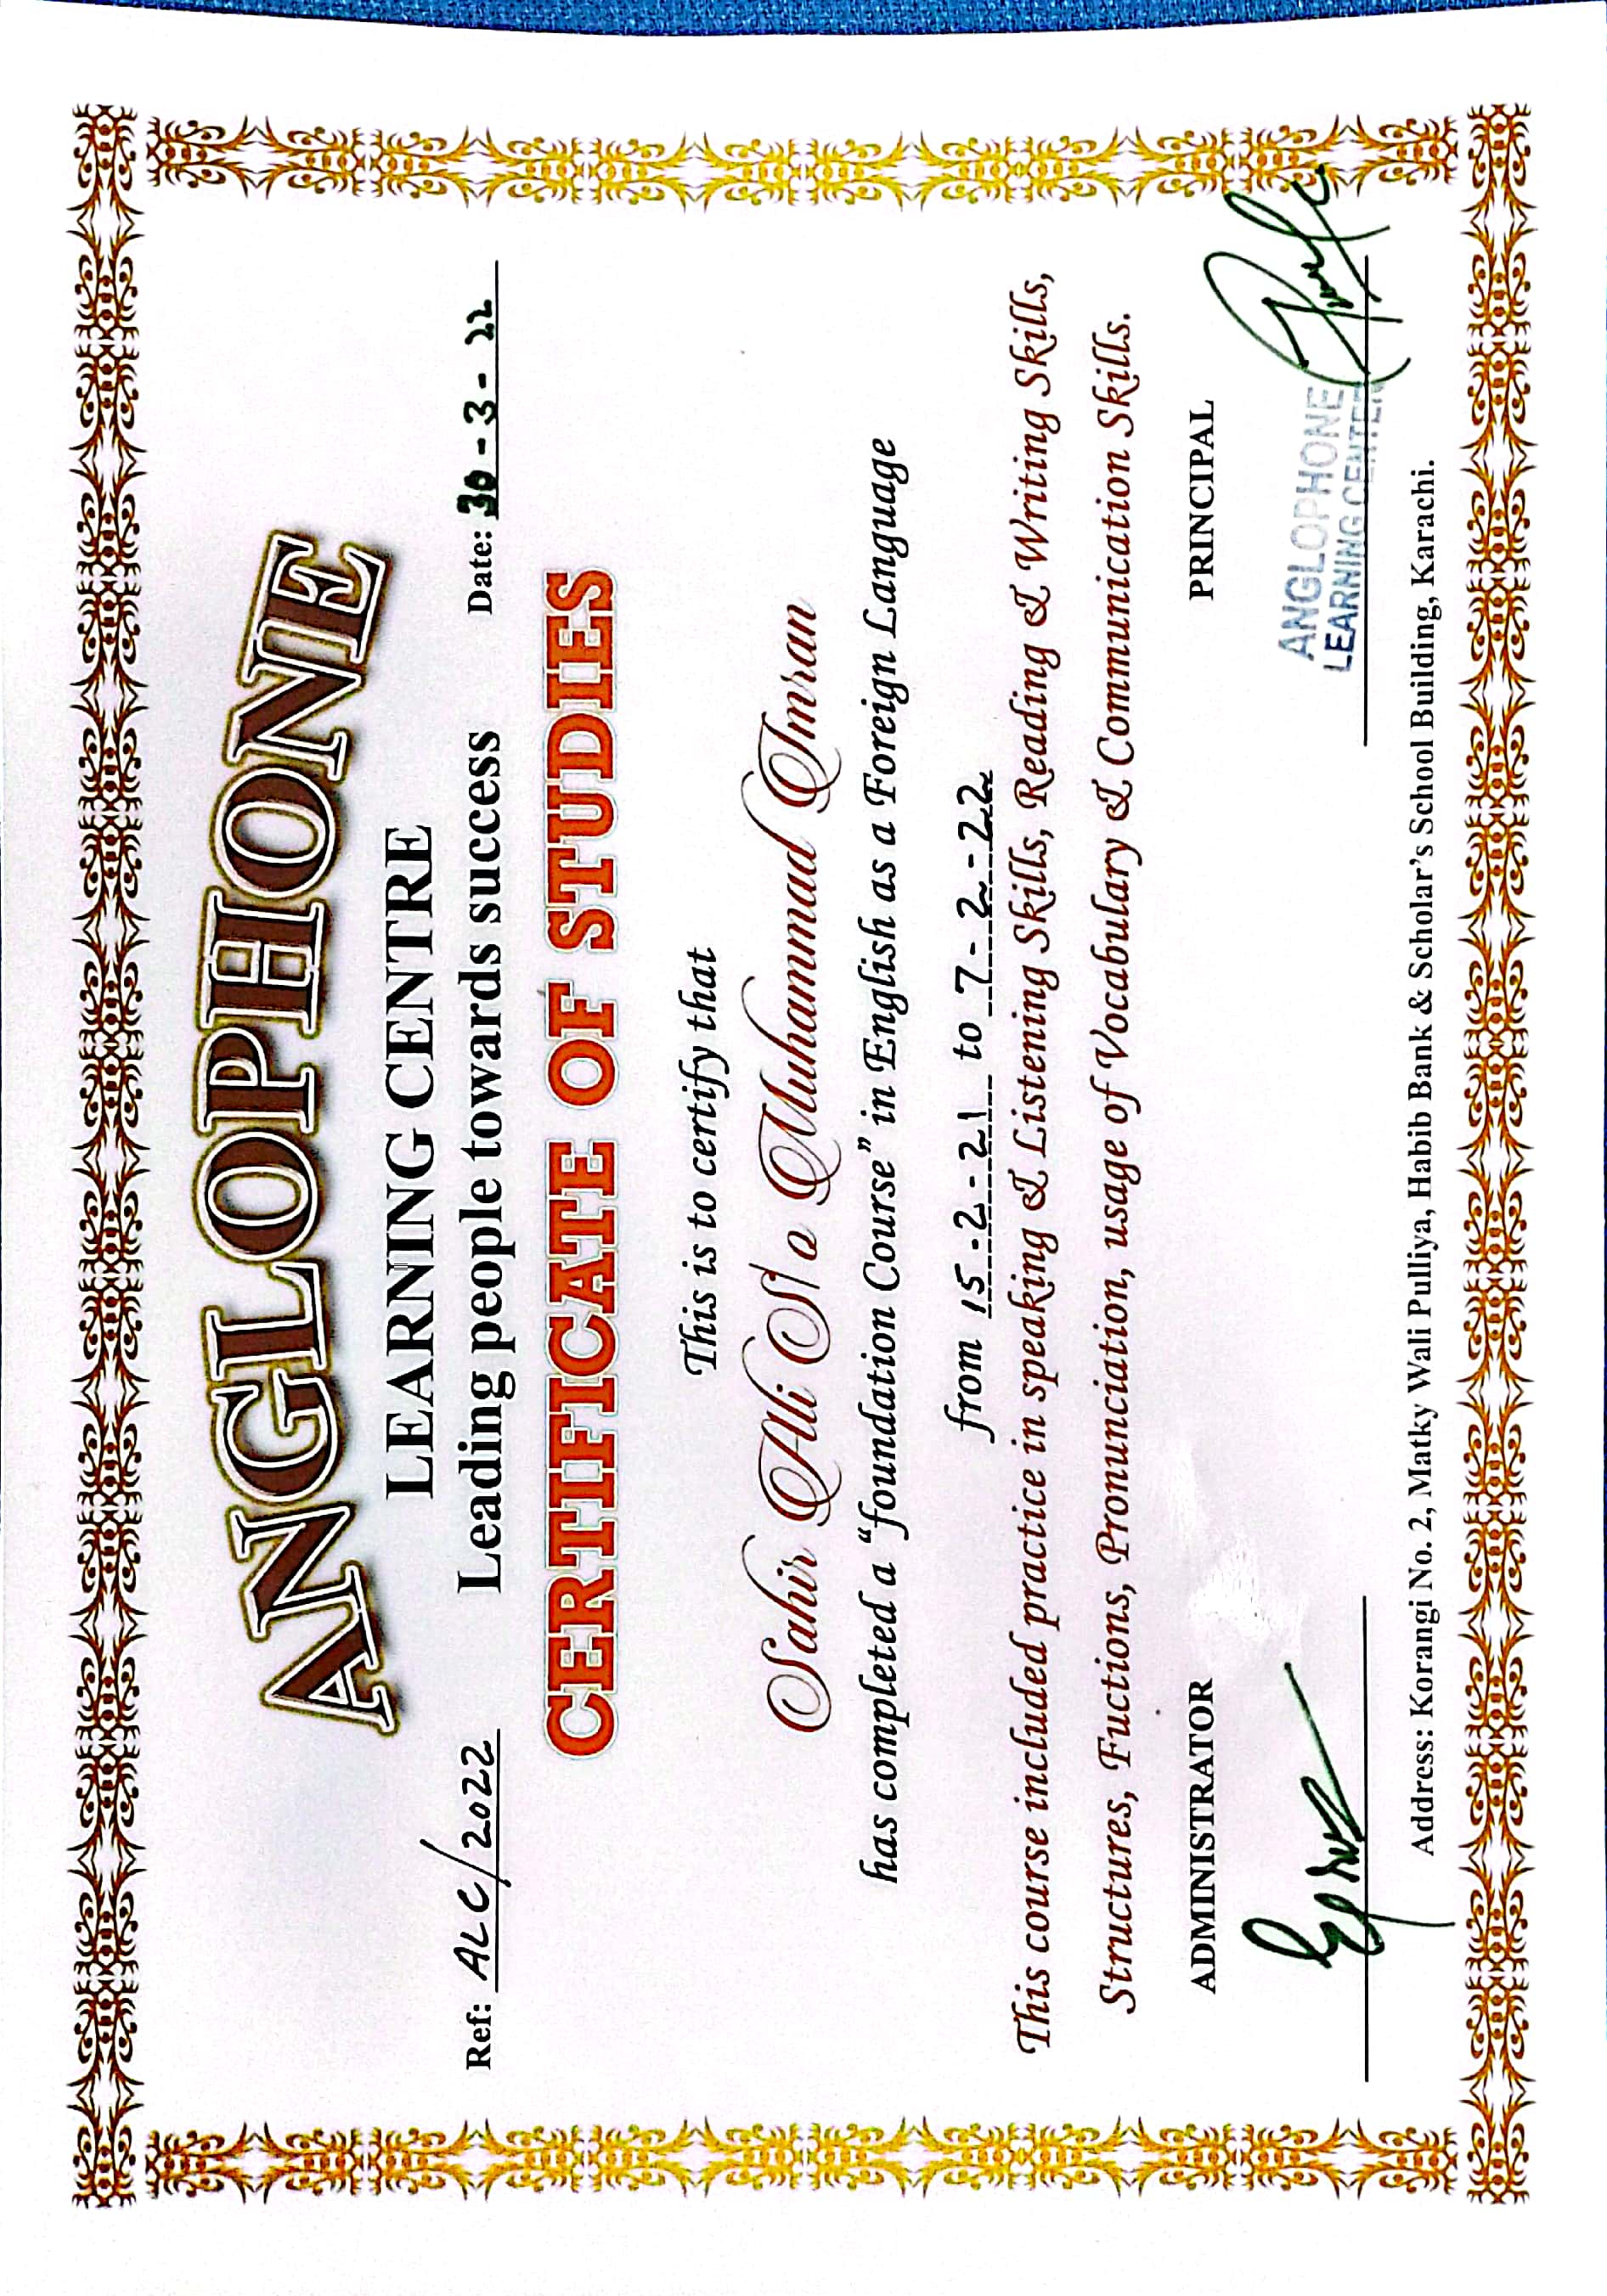 ANGLOPHONE
LEARNING CENTRE
Ref: ALC/2022
Leading people towards success
Date: 30-3-22
CERTIFICATE OF STUDIES
This is to certify that
Sahir Ali S/o Muhammad Imran
has completed a “foundation Course” in English as a Foreign Language
from 15-2-21 to 7-2-22
This course included practice in speaking & Listening Skills, Reading & Writing Skills,
Structures, Fuctions, Pronunciation, usage of Vocabulary & Communication Skills.
ADMINISTRATOR
PRINCIPAL
ANGLOPHONE
LEARNING CENTER
Address: Korangi No. 2, Matky Wali Pulliya, Habib Bank & Scholar’s School Building, Karachi.